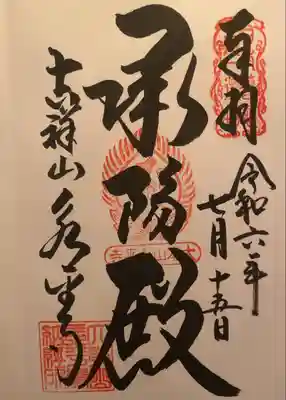 奉拝
令和六年
七月十五日
承陽殿
吉祥山永平寺